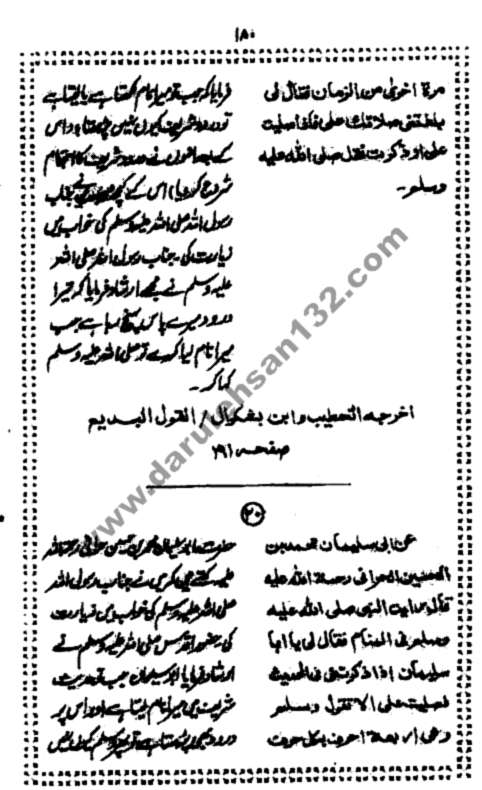 ۱۸۰
مرة اخرى من الزمان فقال لى
بلغتنى صلاتك على فاذا صليت
على او ذكرت فقل صلى الله عليه
وسلم۔
فرمایا کہ جب تو میرا نام لکھتا ہے یا لیتا ہے
تو درود شریف کیوں نہیں پڑھتا؟ اس
کے بعد انہوں نے درود شریف کا اہتمام
شروع کر دیا۔ اس کے کچھ
رسول اللہ صلی اللہ علیہ وسلم کی خواب میں
زیارت کی۔ جناب رسول اللہ صلی اللہ
علیہ وسلم نے مجھے ارشاد فرمایا کہ تیرا
درود میرے پاس پہنچ رہا ہے جب
میرا نام لیا کرے تو صلی اللہ علیہ وسلم
کہا کر۔
اخرجه الخطيب وابن بشكوال / القول البديع
صفحہ ۲۹۱
۲۰
عن ابى سليمان محمد بن
الحسين الحرانى رحمة الله عليه
قال رايت النبى صلى الله عليه
وسلم فى المنام فقال لى يا ابا
سليمان اذا ذكرتنى فى الحديث
فصليت على الا تقول وسلم
وهى اربعة احرف بكل حرف
حضرت ابو سلیمان محمد بن حسین حرانی رحمۃ اللہ
علیہ کہتے ہیں کہ میں نے جناب رسول اللہ
صلی اللہ علیہ وسلم کی خواب میں زیارت
کی۔ حضور اقدس صلی اللہ علیہ وسلم نے
ارشاد فرمایا ابو سلیمان جب تو حدیث
شریف میں میرا نام لیتا ہے اور اس پر
درود بھی پڑھتا ہے تو پھر وسلم کیوں نہیں
www.darulehsan132.com